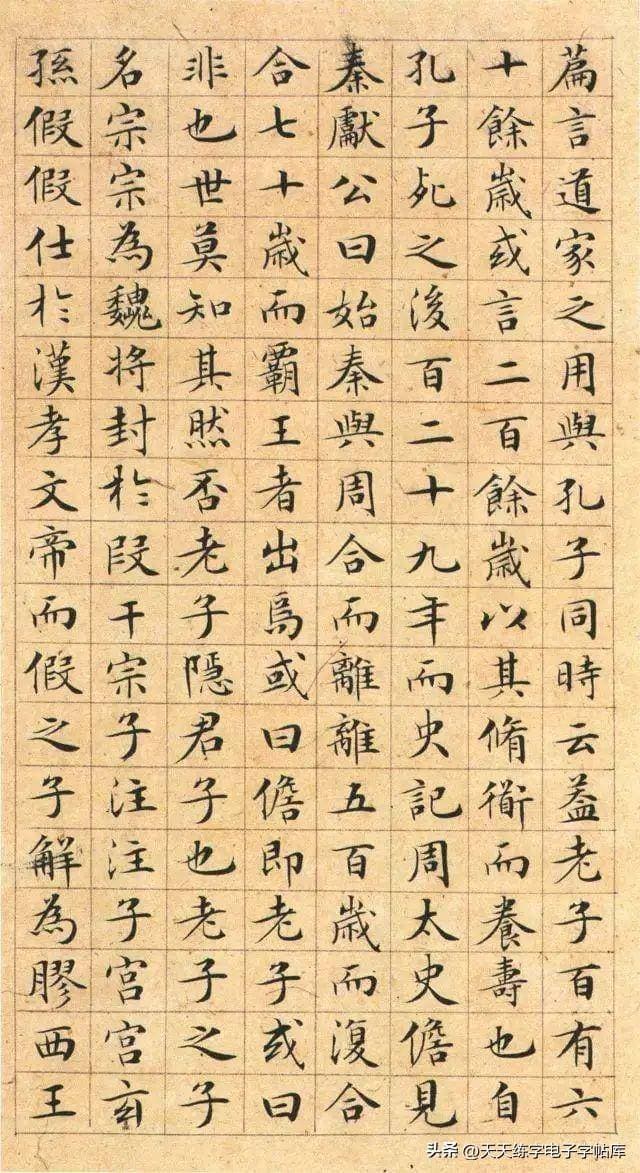 篇言道家之用與孔子同時云葢老子百有六
十餘歲或言二百餘歲以其脩衜而養壽也自
孔子死之後百二十九年而史記周太史儋見
秦獻公曰始秦與周合而離離五百歲而復合
合七十歲而霸王者出焉或曰儋即老子或曰
非也世莫知其然否老子隱君子也老子之子
名宗宗為魏將封於段干宗子注注子宮宮玄
孫假假仕於漢孝文帝而假之子解為膠西王
头条 @天天练字电子字帖库